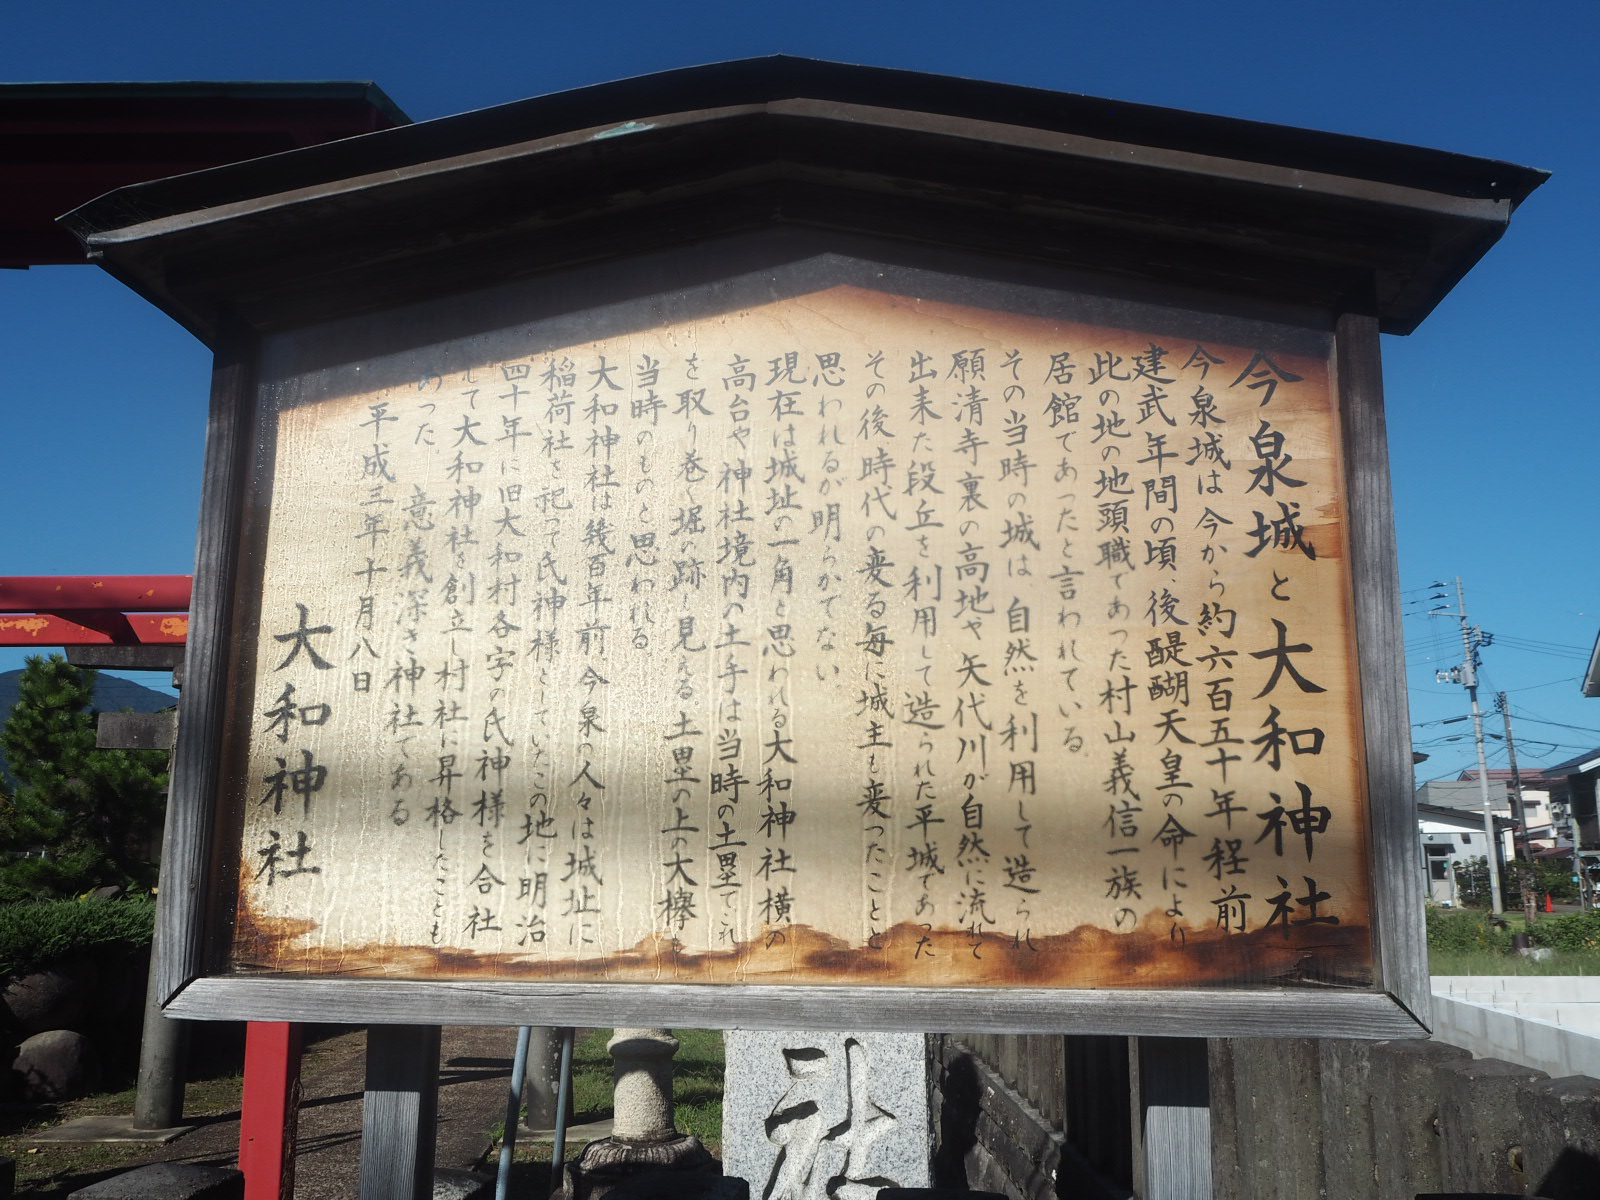 今泉城と大和神社
今泉城は今から約六百五十年程前
建武年間の頃、後醍醐天皇の命により
此の地の地頭職であった村山義信一族の
居館であったと言われている。
その当時の城は自然を利用して造られ
願清寺裏の高地や矢代川が自然に流れて
出来た段丘を利用して造られた平城であった
その後時代の変る毎に城主も変ったことと
思われるが明らかでない。
現在は城址の一角と思われる大和神社横の
高台や神社境内の土手は当時の土塁でこれ
を取り巻く堀の跡も見える。土塁の上の大欅も
当時のものと思われる
大和神社は幾百年前、今泉の人々は城址に
稲荷社を祀って氏神様としていたこの地に明治
四十年に旧大和村各字の氏神様を合社
して大和神社を創立し村社に昇格したことも
あった。意義深き神社である
平成三年十月八日
大和神社
社